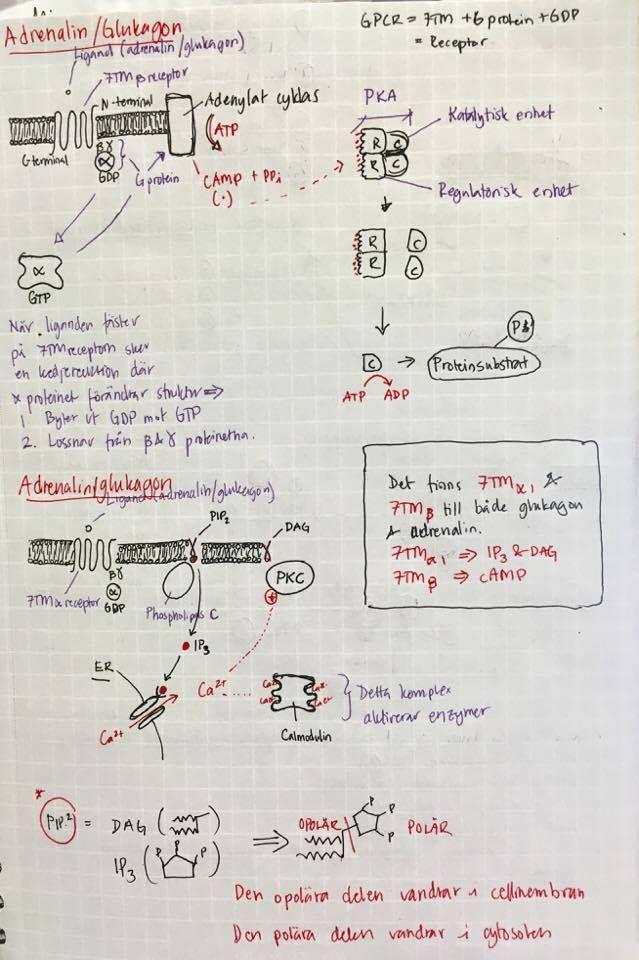 Adrenalin/Glukagon
GPCR = 7TM + G protein + GDP
= Receptor
Ligand (adrenalin/glukagon)
7TM β receptor
N-terminal
Adenylat cyklas
ATP
C-terminal
βγ
α
GDP
G protein
CAMP + PPi
(·)
PKA
Katalytisk enhet
R C
R C
Regulatorisk enhet
R C
R C
α
GTP
När liganden fäster
på 7TM receptorn sker
en kedjereaktion där
α proteinet förändrar struktur ⇒
1 Byter ut GDP mot GTP
2. Lossnar från β & γ proteinerna.
C → Proteinsubstrat
ATP ADP
Adrenalin/glukagon
Ligand (adrenalin/glukagon)
PIP2
DAG
βγ
α
GDP
7TM α receptor
Phospholipas C
PKC
+
IP3
ER
Ca2+
Ca2+ .....
Ca2+
Ca2+
Calmodulin
Detta komplex
aktiverar enzymer
Det finns 7TMα1 &
7TMβ till både glukagon
& adrenalin.
7TMα1 ⇒ IP3 & DAG
7TMβ ⇒ cAMP
*
PIP2 = DAG ( )
IP3 ( P P P )
⇒ OPOLÄR P P P POLÄR
Den opolära delen vandrar i cellmembran
Den polära delen vandrar i cytosolen